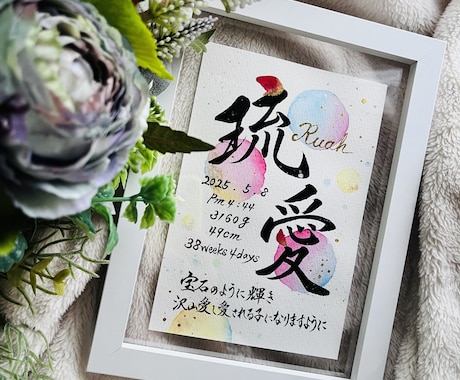 琉愛
Ruan
2025.5.8
Pm4:44
3160g
49cm
38weeks4days
宝石のように輝き
沢山愛し愛される子になりますように